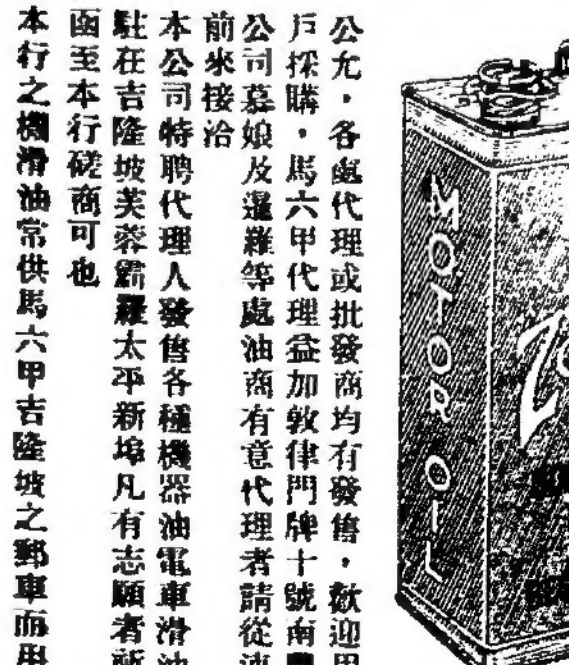 公允,各處代理或批發商均有發售,歡迎用
戶採購,馬六甲代理益加敦律門牌十號南
公司慕娘及暹羅等處油商有意代理者請從速
前來接洽
本公司特聘代理人發售各種機器油電車滑油
駐在吉隆坡芙蓉霹靂太平新埠凡有志願者
函至本行磋商可也
本行之機滑油常供馬六甲吉隆坡之郵車而用
MOTOR OIL